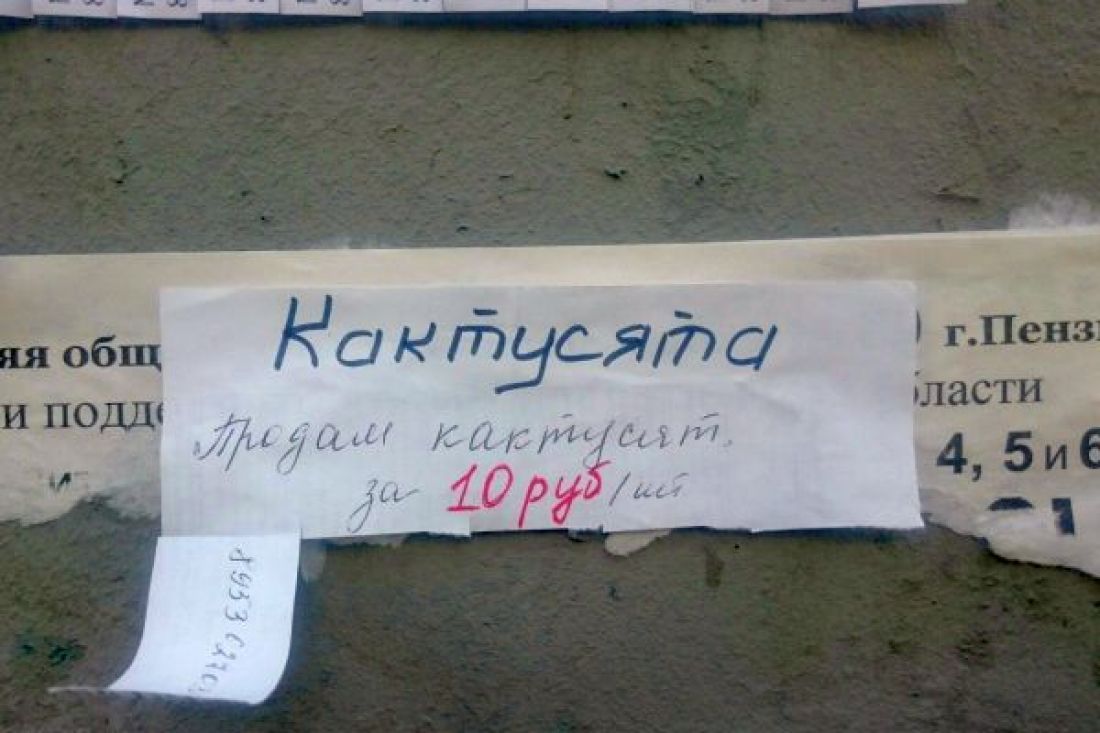 Кактусята
Продам кактусят.
за 10 руб/шт
яя общ
и подде
г.Пенз
бласти
4, 5 и 6